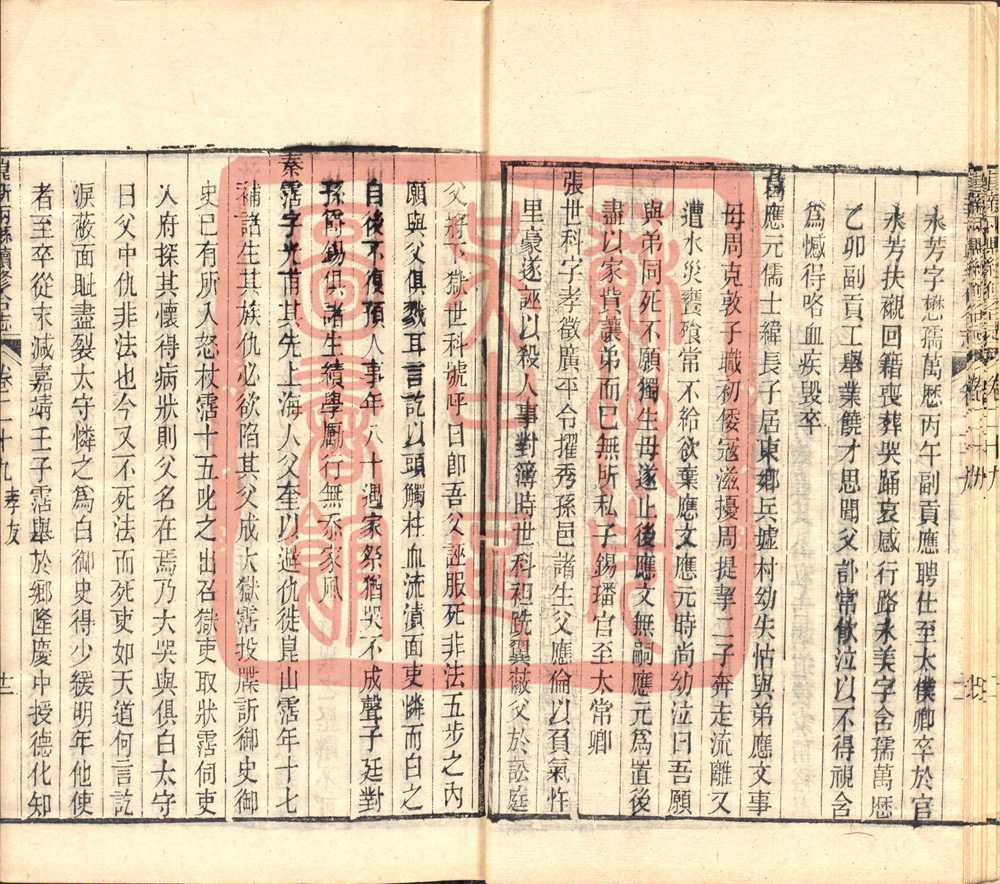 永芳字懋孺萬歷丙午副貢應聘仕至太僕卿卒於官
永芳扶櫬回籍喪葬哭踊哀感行路永美字含孺萬歷
乙卯副貢工舉業饒才思聞父訃常飲泣以不得視含
爲憾得咯血疾毀卒
葛應元儒士緯長子居東鄉兵墟村幼失怙與弟應文事
母周克敦子職初倭寇滋擾周提挈二子奔走流離又
遭水災饔飧常不給欲棄應文應元時尚幼泣曰吾願
與弟同死不願獨生母遂止後應文無嗣應元爲置後
盡以家貲讓弟而已無所私子錫璠官至太常卿
張世科字孝徵廣平令擢秀孫邑諸生父應倫以負氣忤
里豪遂誣以殺人事對簿時世科袒跣翼蔽父於訟庭
父將下獄世科號呼曰卽吾父誣服死非法五步之內
願與父俱戮耳言訖以頭觸柱血流漬面吏憐而白之
自後不復預人事年八十遇家祭猶哭不成聲子廷對
孫錫俱諸生績學勵行無忝家風
秦霑字光甫其先上海人父奎以避仇徙崑山霑年十七
補諸生其族仇必欲陷其父成大獄霑投牒訴御史御
史已有所入怒杖霑十五叱之出召獄吏取狀霑伺吏
入府探其懷得病狀則父名在焉乃大哭與俱白太守
曰父中仇非法也今又不死法而死吏如天道何言訖
淚蔽面耻盡裂太守憐之爲白御史得少緩明年他使
者至卒從末減嘉靖壬子霑舉於鄉隆慶中授德化知
崑新兩縣續修合志 卷二十九 孝友